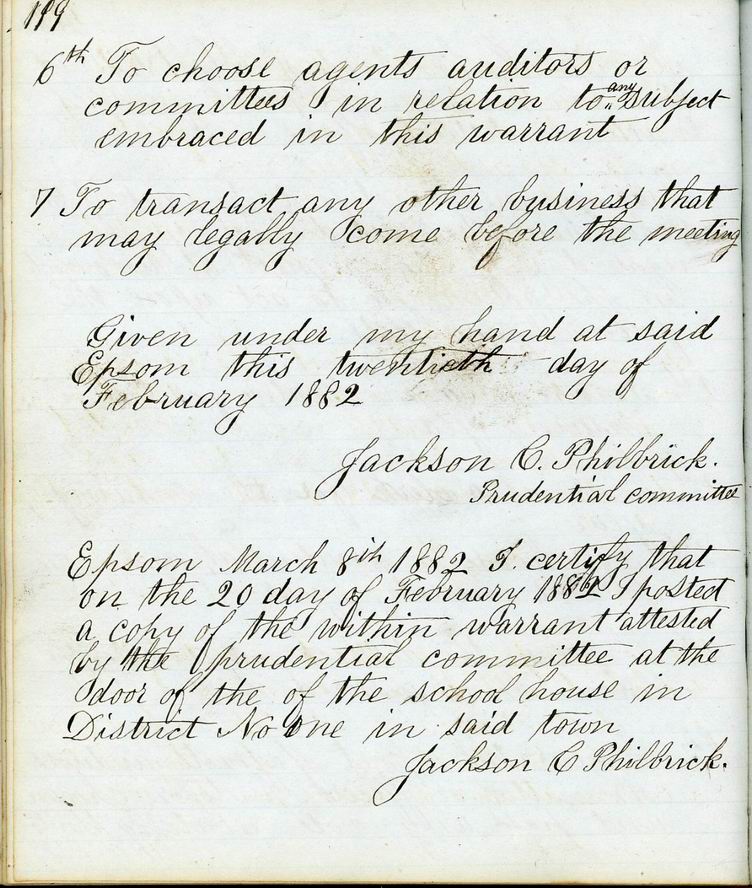 119
6th To choose agents auditors or
committees in relation to any subject
embraced in this warrant
7 To transact any other business that
may legally come before the meeting
Given under my hand at said
Epsom this twentieth day of
February 1882
Jackson C. Philbrick.
Prudential committee
Epsom March 8th 1882 I certify that
on the 20 day of February 1882 I posted
a copy of the within warrant attested
by the prudential committee at the
door of the of the school house in
District No one in said town
Jackson C Philbrick.